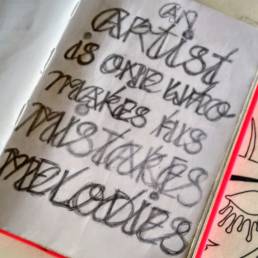 an
ARTist
is one who
makes his
MISTAKES
MELODIES